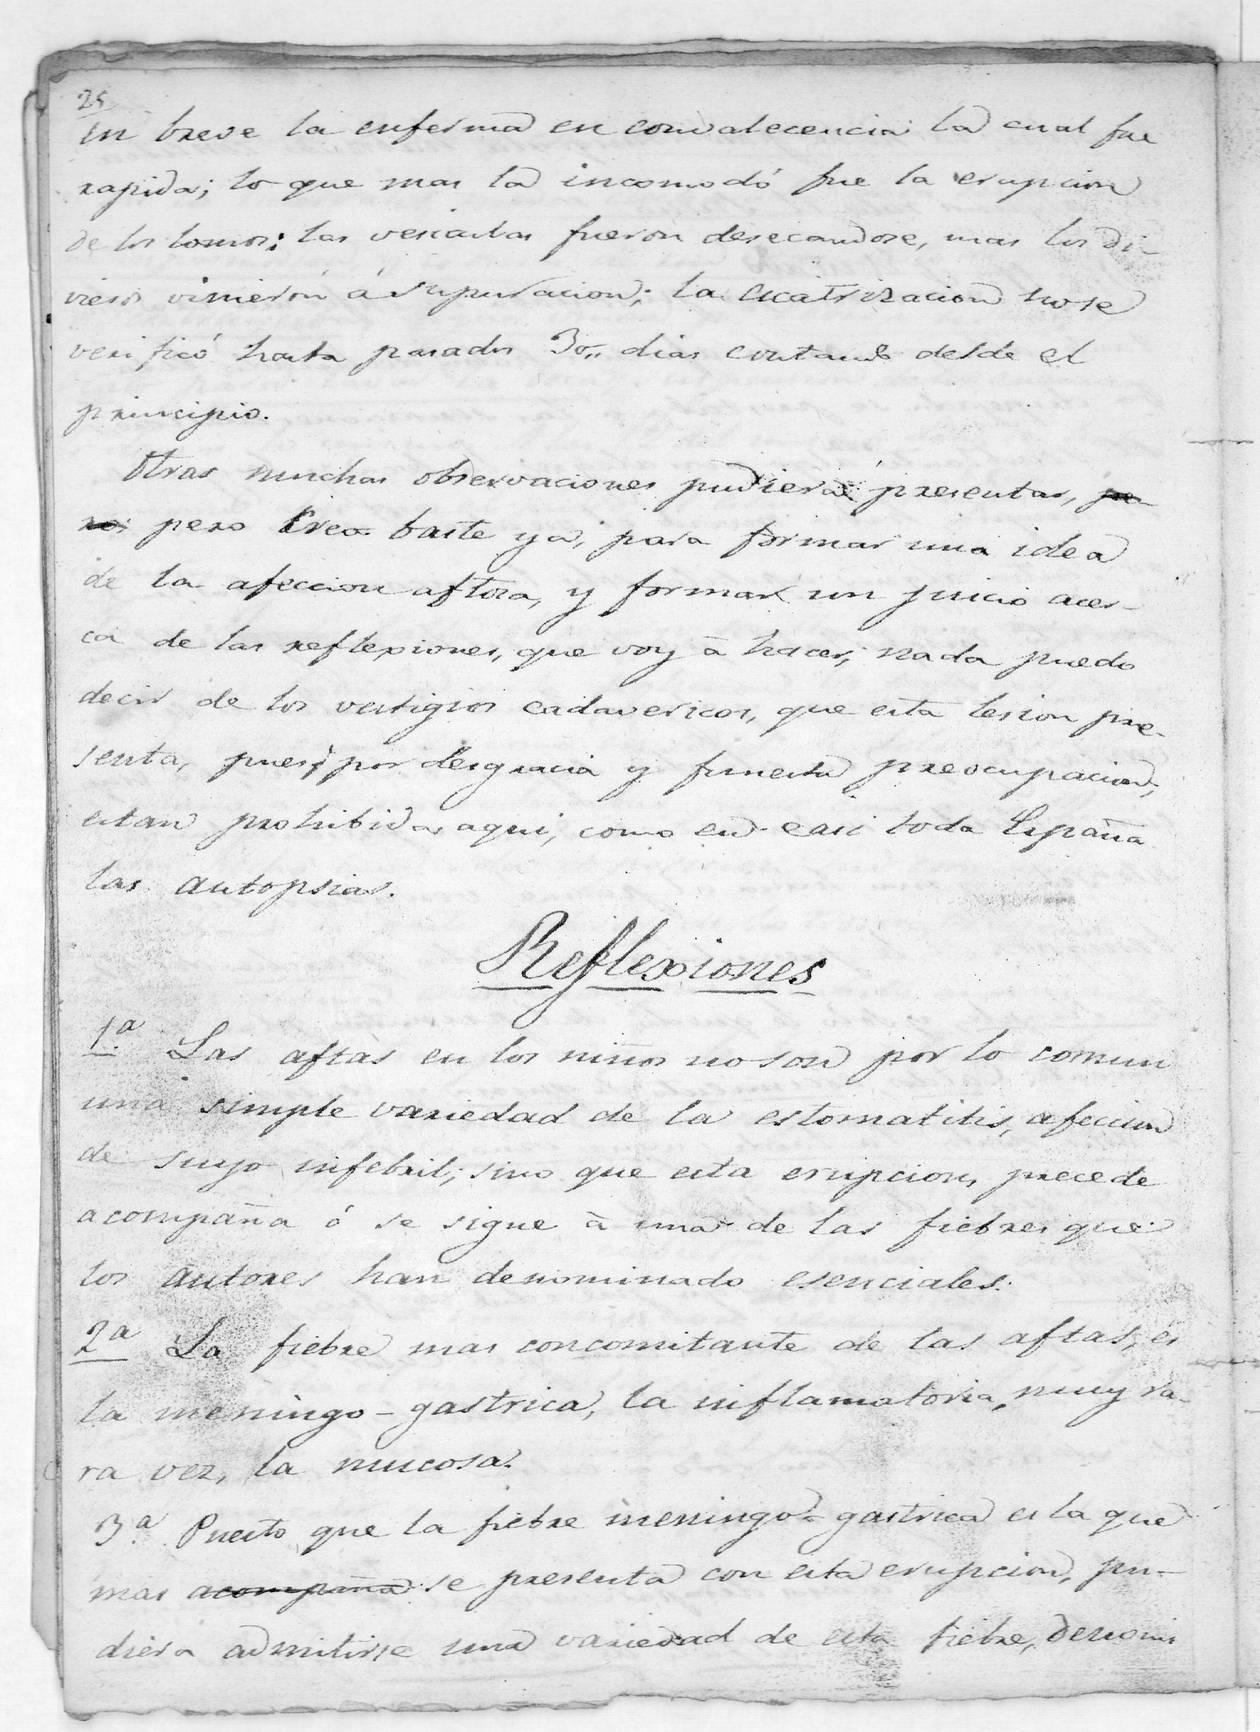 25
en breve la enferma en convalecencia la cual fue
rapida; lo que mas la incomodó fue la erupcion
de los lomos; las vesiculas fueron desecandose, mas los di-
viesos vinieron á supuracion; la cicatrizacion no se
verificó hasta pasados 30,, dias contando desde el
principio.
Otras muchas observaciones pudiera presentar, pe-
ro pero creo baste ya, para formar una idea
de la afeccion aftosa, y formar un juicio acer-
ca de las reflexiones, que voy á hacer; nada puedo
decir de los vestigios cadavericos, que esta lesion pre-
senta, pues por desgracia y funesta preocupacion,
estan prohibidas aqui, como en casi toda España
las autopsias.
Reflexiones
1.ª Las aftas en los niños no son por lo comun
una simple variedad de la estomatitis, afeccion
de suyo infebril; sino que esta erupcion, precede
acompaña ó se sigue á una de las fiebres que
los autores han denominado esenciales.
2ª La fiebre mas concomitante de las aftas, es
la meningo-gastrica, la inflamatoria, muy ra-
ra vez, la mucosa.
3.ª Puesto que la fiebre meningo-gastrica es la que
mas acompaña se presenta con esta erupcion, pu-
diera admitirse una variedad de esta fiebre, denomi